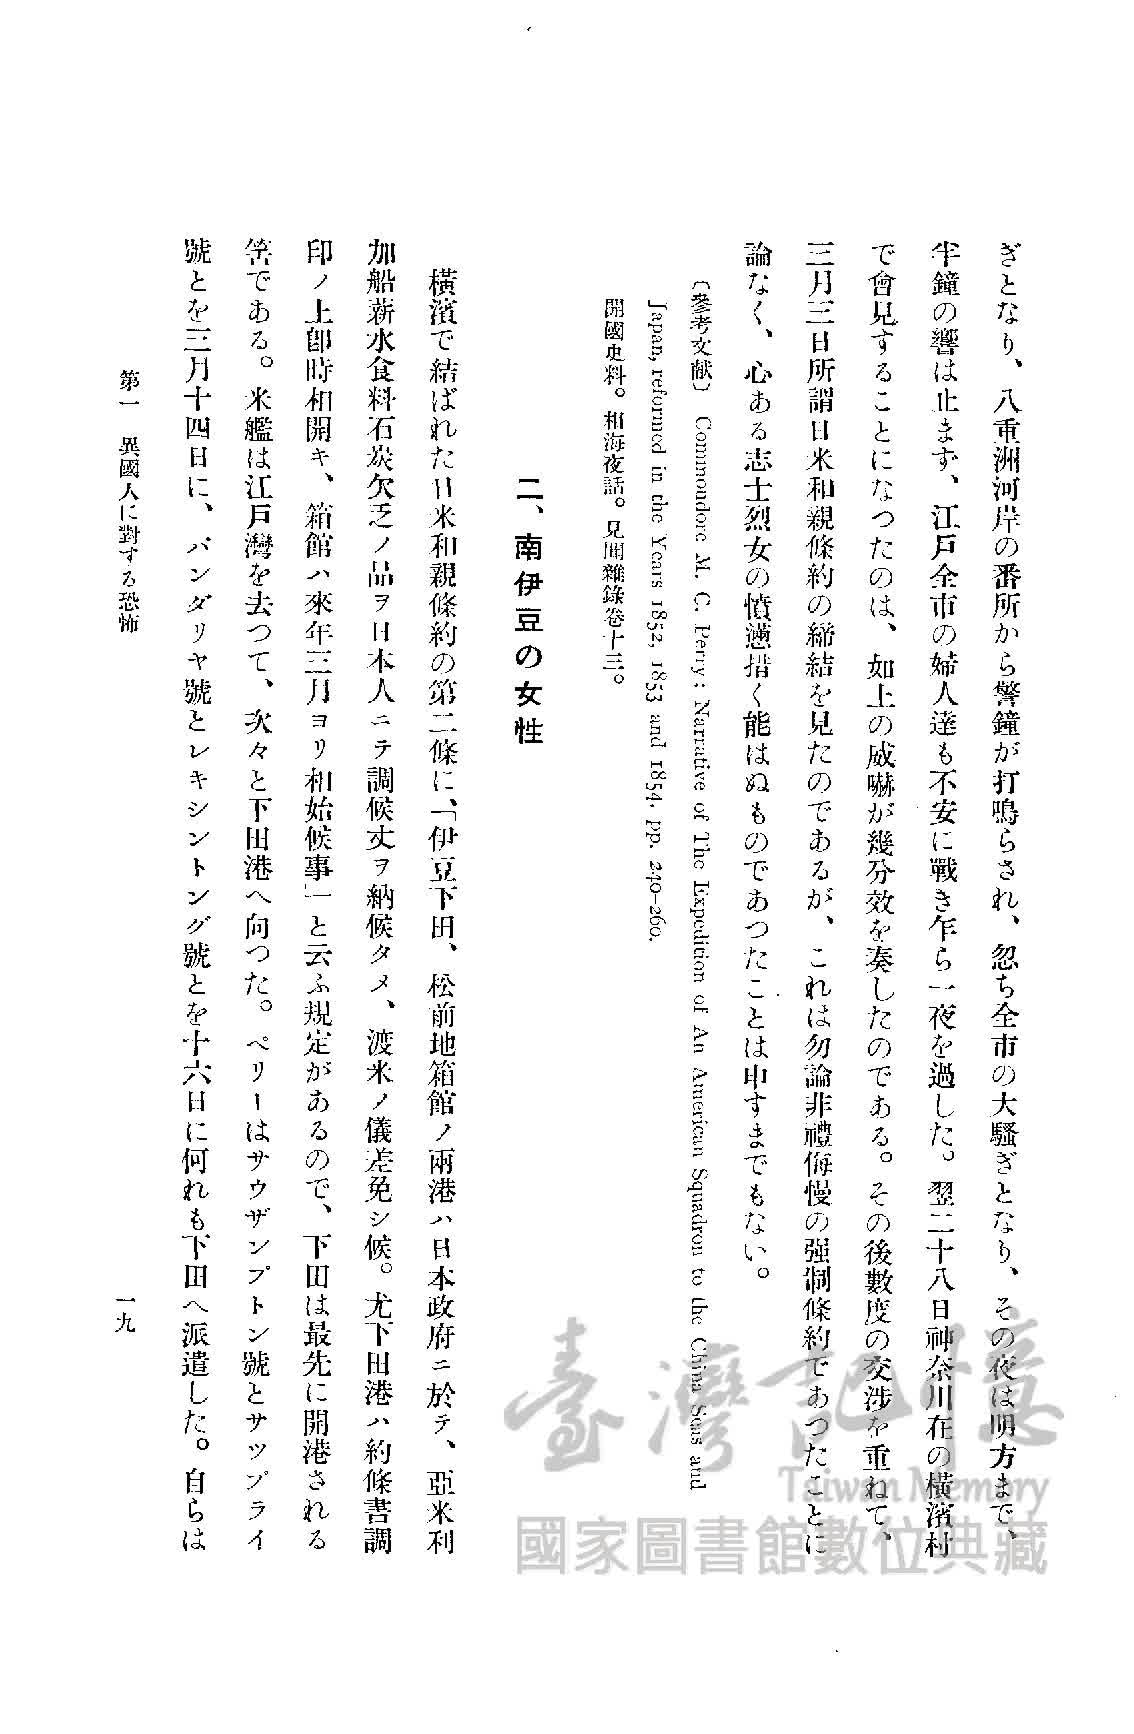 ぎとなり、八重洲河岸の番所から警鐘が打鳴らされ、忽ち全市の大騷ぎとなり、その夜は明方まで、
半鐘の響は止まず、江戸全市の婦人達も不安に戰き乍ら一夜を過した。翌二十八日神奈川在の橫濱村
で會見することになつたのは、如上の威嚇が幾分效を奏したのである。その後數度の交涉を重ねて、
三月三日所謂日米和親條約の締結を見たのであるが、これは勿論非禮侮慢の强制條約であつたことに
論なく、心ある志士烈女の憤懣措く能はぬものであつたことは申すまでもない。
〔參考文獻〕 Commondore M. C. Perry: Narrative of The Expedition of An American Squadron to the China Seas and
Japan, reformed in the Years 1852, 1853 and 1854. pp. 240-260.
開國史料。相海夜話。見聞雜錄卷十三。
二、南伊豆の女性
橫濱で結ばれた日米和親條約の第二條に、「伊豆下田、松前地箱館ノ兩港ハ日本政府ニ於テ、亞米利
加船薪水食料石炭欠乏ノ品ヲ日本人ニテ調候丈ヲ納候タメ、渡米ノ儀差免シ候。尤下田港ハ約條書調
印ノ上卽時相開キ、箱館ハ來年三月ヨリ相始候事」と云ふ規定があるので、下田は最先に開港される
筈である。米艦は江戸灣を去つて、次々と下田港へ向つた。ペリーはサウザンプトン號とサツプライ
號とを三月十四日に、バンダリヤ號とレキシントング號とを十六日に何れも下田へ派遣した。自らは
第一 異國人に對する恐怖
一九
臺灣記憶
Taiwan Memory
國家圖書館數位典藏